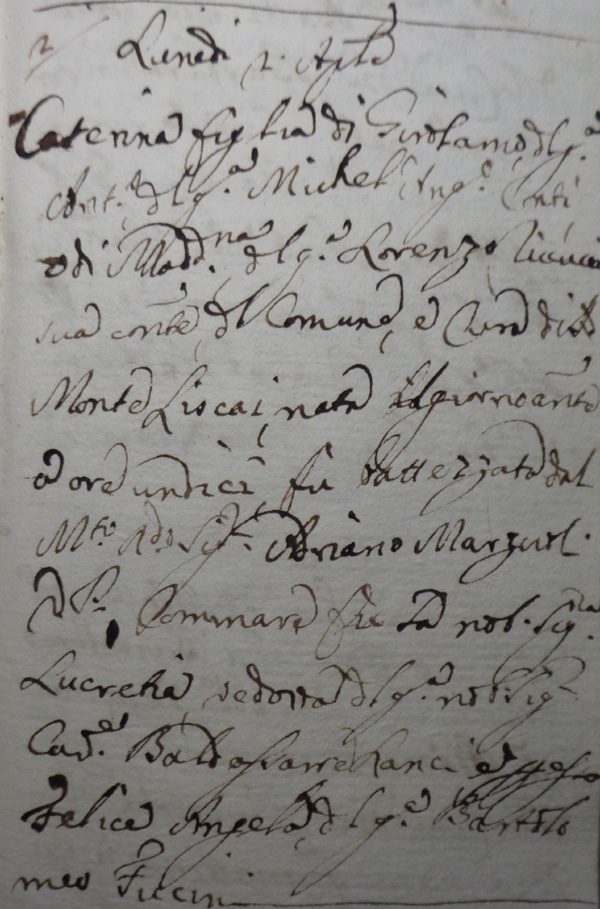 2/ Lunedi 2. Aple
Caterina figlia di Girolamo, dl q.
Cont. dl q. Michel Ang. Conti
e di Madna, dl q. Lorenzo
sua conte, dl Comune, e Cura di S
Monte Liscai, nata il giorno ante
a ore undici, fu battezzata dal
Mto Rdo Sig. Adriano Marzuol.
Commare fu la nob. Sigra
Lucretia, vedova dl q. nob. Sig
Cav. Baldassarre
Felice Angela, dl q. Bartolo
meo Fucini